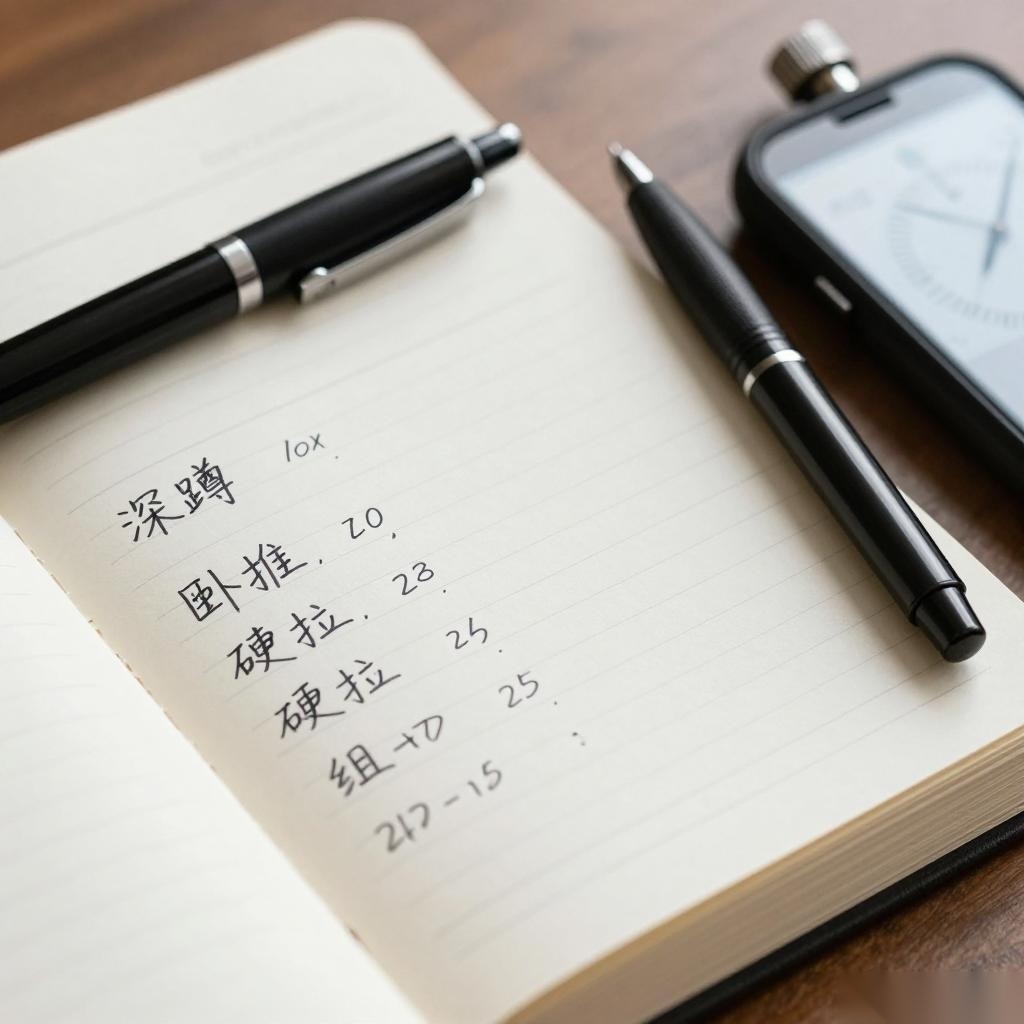 深蹲 10x.
卧推. 20.
硬拉. 23.
硬拉 25.
组+D 25.
217-15 :